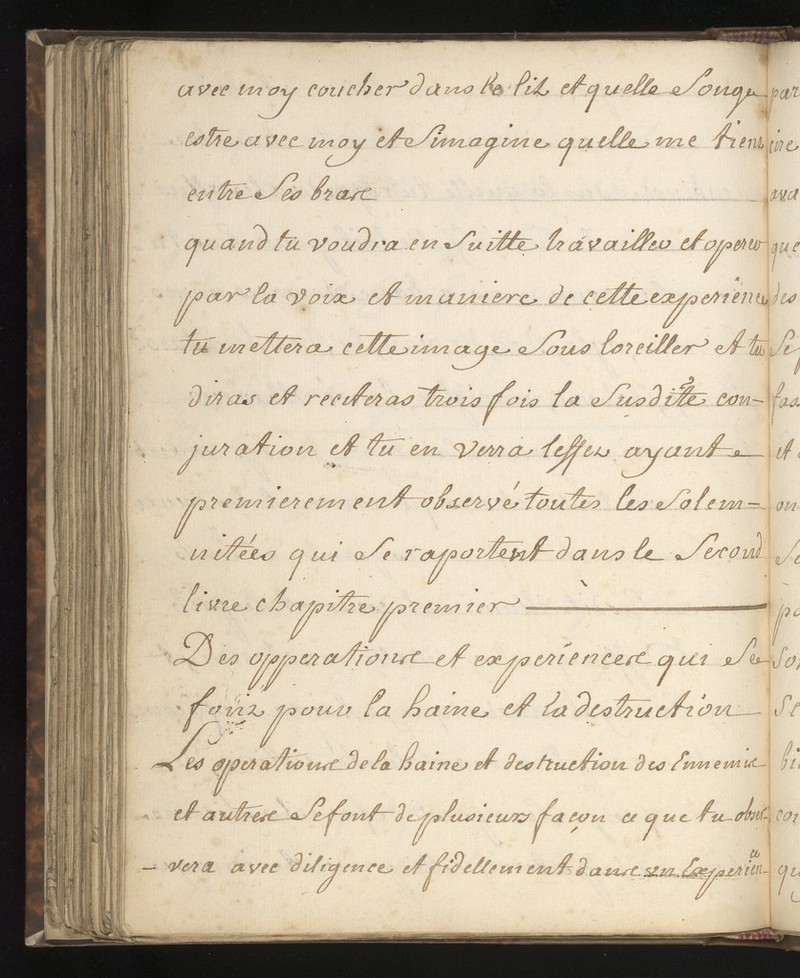 avec moy coucher dans le lit et quelle Songe
estre avec moy et Simagine quelle me tient
entre Ses bras
quand tu voudra en Suitte travailler et operer
par la voix et maniere de cette experience
tu mettera cette image Sous loreiller et tu
diras et reciteras trois fois la Susdite con-
juration et tu en Verra leffet ayant
premierement observé toutes les Solem=
nitées qui Se raportent dans le Second
livre chapitre premier
Des opperations et experiences qui Se
font pour la haine et la destruction
Les operations de la haine et destruction des Ennemis
et autres Se font de plusieurs façon ce que tu obser-
vera avec diligence et fidellement dans un Experien-
ce